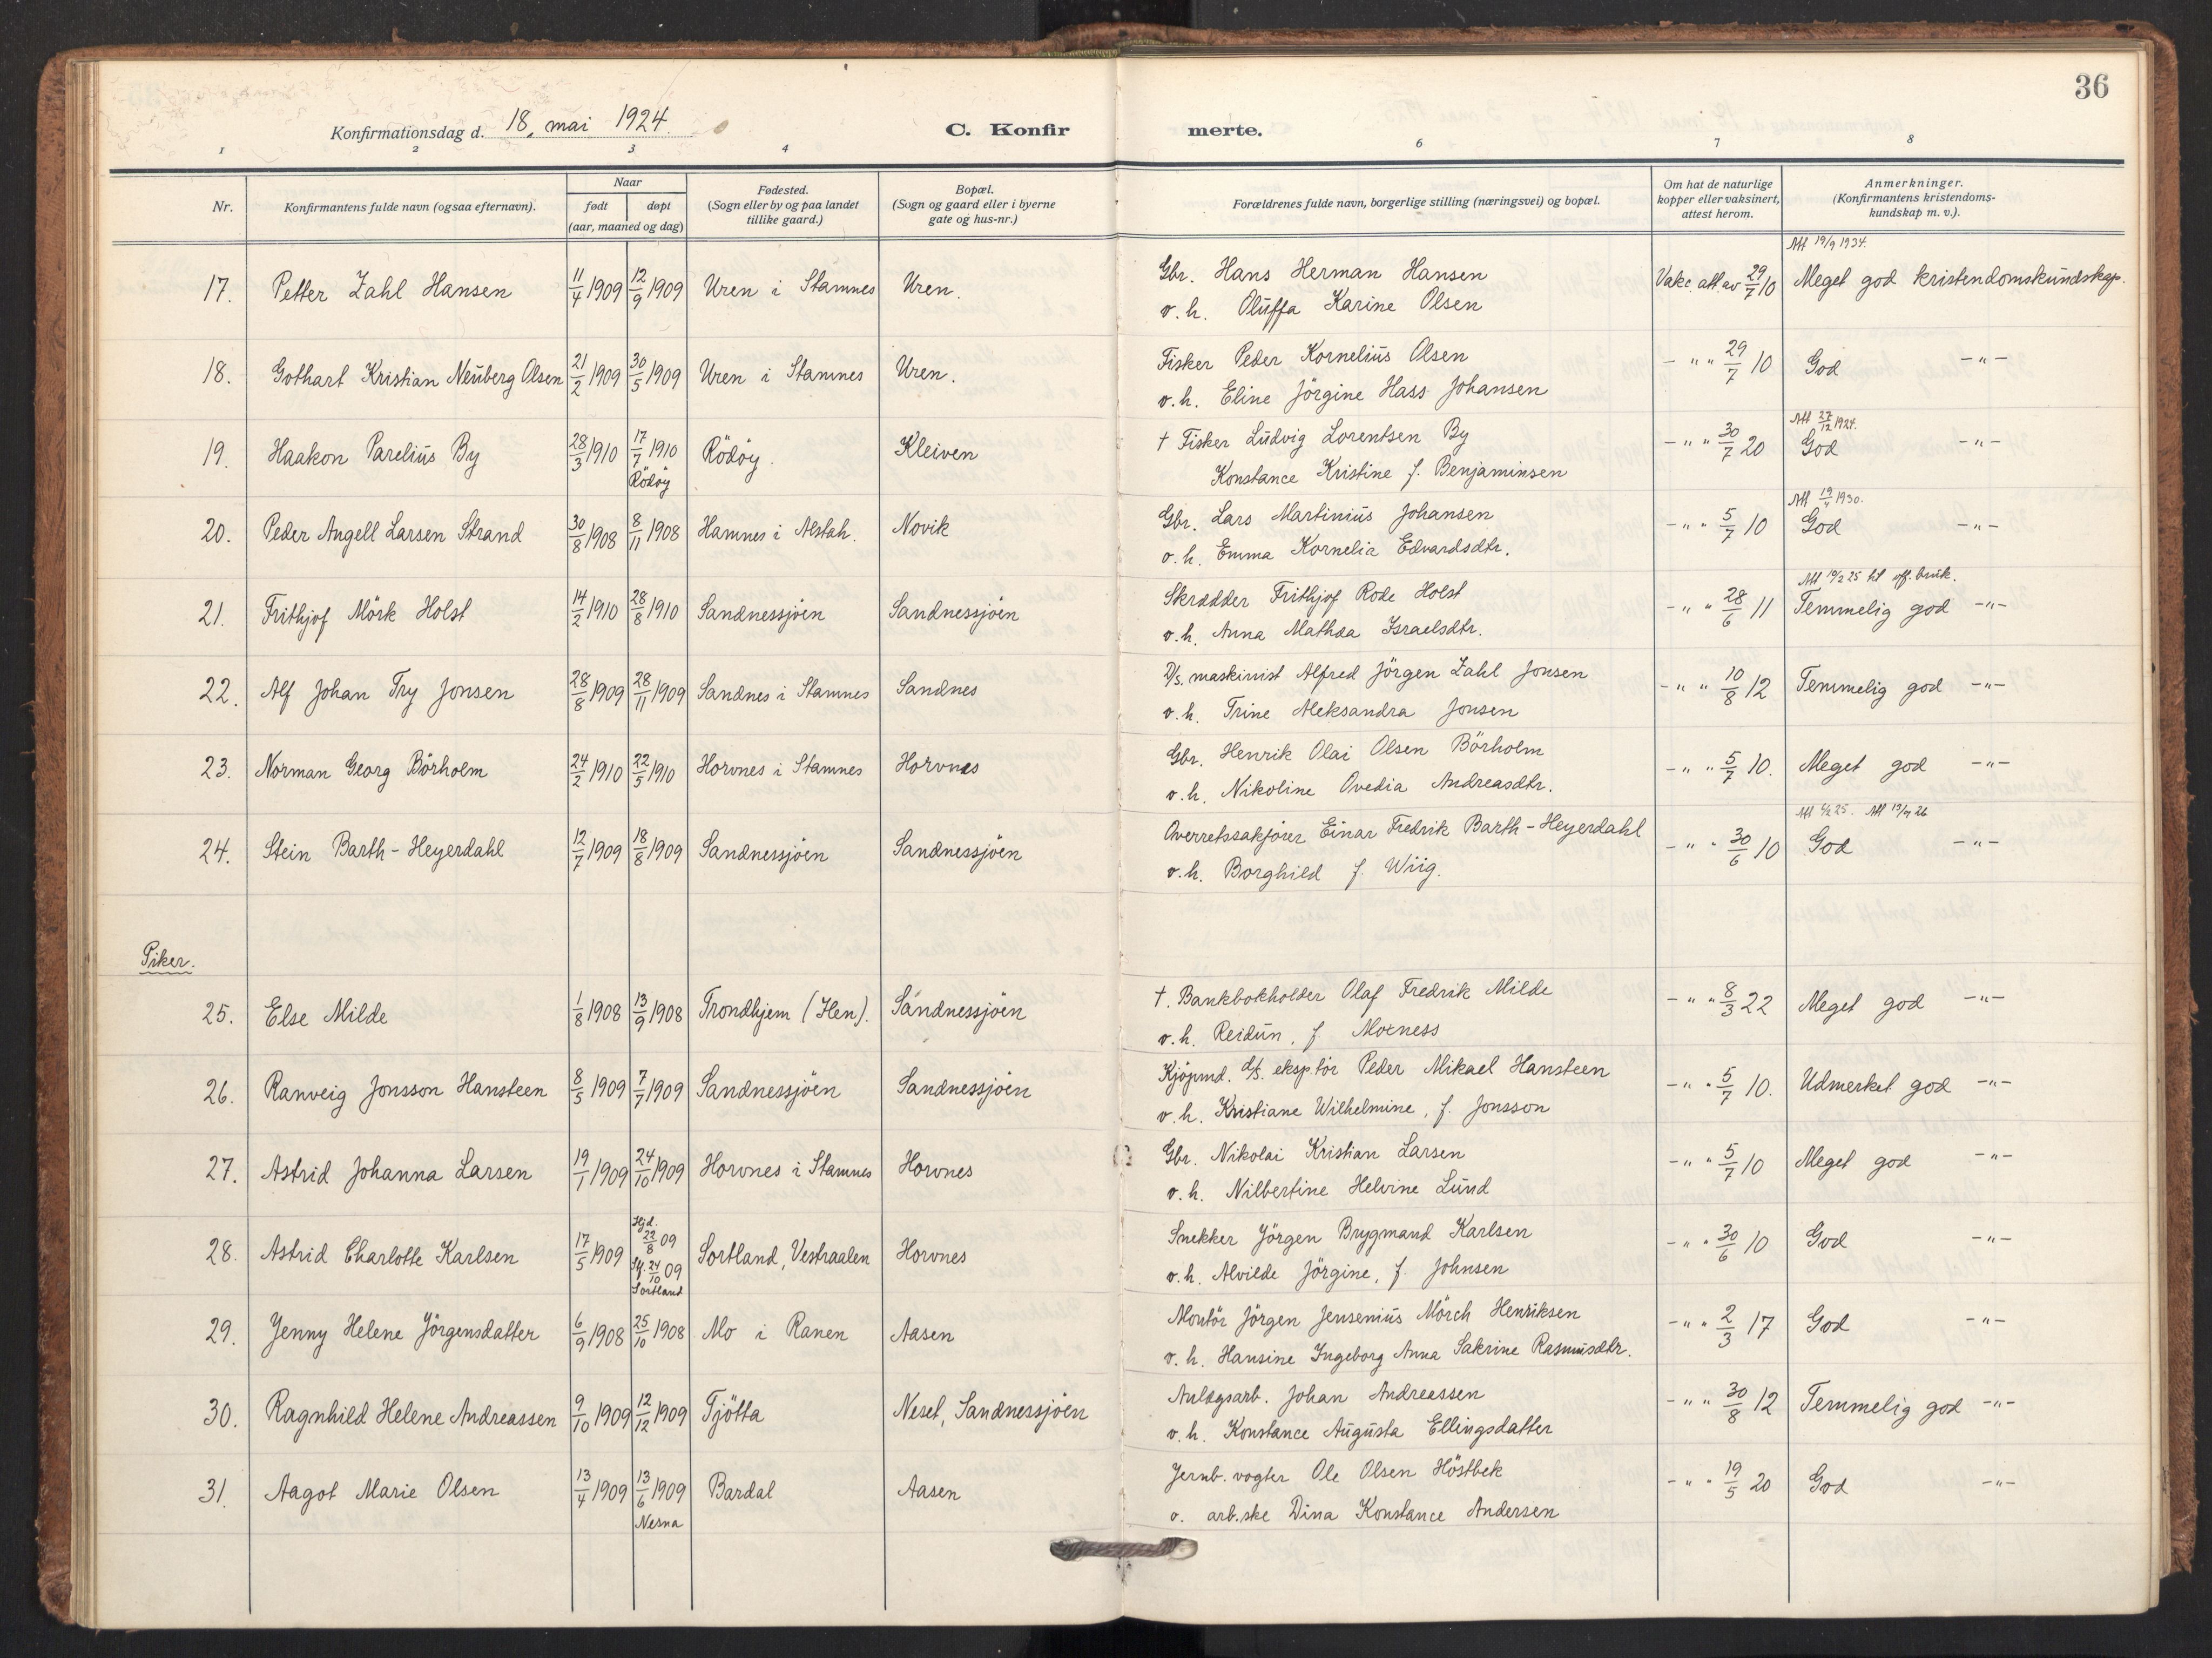 36
Konfirmationsdag d. 18. mai 1924.
C. Konfir
merte.
1 2 3 4
6 7 8
Nr.
Konfirmantens fulde navn (ogsaa efternavn).
Naar
født
døpt
(aar, maaned og dag)
Fødested.
(Sogn eller by og paa landet
tillike gaard.)
Bopæl.
(Sogn og gaard eller i byerne
gate og hus-nr.)
Forældrenes fulde navn, borgerlige stilling (næringsvei) og bopæl.
Om hat de naturlige
kopper eller vaksinert,
attest herom.
Anmerkninger.
(Konfirmantens kristendoms-
kundskap m. v.).
Att 19/9 1934.
17. Petter Zahl Hansen 11/4 1909 12/9 1909 Uren i Stamnes Uren. Gbr. Hans Herman Hansen Vakc. att. av 29/7 10 Meget god kristendomskundskap.
v. h. Oluffa Karine Olsen
18. Gothart Kristian Neuberg Olsen 21/2 1909 30/5 1909 Uren i Stamnes Uren. Fisker Peder Kornelius Olsen - " " 29/7 10 God -"-
v. h. Eline Jörgine Hass Johansen
Att 27/12 1924.
19. Haakon Parelius By 28/3 1910 17/7 1910 Rödöy. Kleiven † Fisker Ludvig Lorentsen By - " " 30/7 20 God -"-
Rödöy
Konstance Kristine f. Benjaminsen
Att 19/ 1930.
20. Peder Angell Larsen Strand 30/8 1908 8/11 1908 Hamnes i Alstah. Novik Gbr. Lars Martinius Johansen - " " 5/7 10 God -"-
v. h. Emma Kornelia Edvardsdtr.
Att 19/2 25 til off. bruk.
21. Frithjof Mörk Holst 14/2 1910 28/8 1910 Sandnessjöen Sandnessjöen Skrædder Frithjof Rode Holst - " " 28/6 11 Temmelig god -"-
v. h. Anna Mathea Israelsdtr.
22. Alf Johan Try Jonsen 28/8 1909 28/11 1909 Sandnes i Stamnes Sandnes D/s. maskinist Alfred Jörgen Zahl Jonsen - " " 10/8 12 Temmelig god -"-
v. h. Trine Aleksandra Jonsen
23. Norman Georg Börholm 24/2 1910 22/5 1910 Horvnes i Stamnes Horvnes Gbr. Henrik Olai Olsen Börholm - " " 5/7 10. Meget god -"-
v. h. Nikoline Ovedia Andreasdtr.
24. Stein Barth-Heyerdahl 12/7 1909 18/8 1909 Sandnessjöen Sandnessjöen Overretssakförer Einar Fredrik Barth-Heyerdahl - " " 30/6 10 God -"-
v. h. Borghild f. Wiig.
Piker.
25. Else Milde 1/8 1908 13/9 1908 Trondhjem (Ilen). Sandnessjöen †. Bankbokholder Olaf Fredrik Milde - " " 8/3 22 Meget god -"-
v. h. Reidun, f. Moxness
26. Ranveig Jonsson Hansteen 8/5 1909 7/7 1909 Sandnessjöen Sandnessjöen Kjöpmd. d/s. eksp.tör Peder Mikael Hansteen - " " 5/7 10. Udmerket god -"-
v. h. Kristiane Wilhelmine, f. Jonsson
27. Astrid Johanna Larsen 19/1 1909 24/10 1909 Horvnes i Stamnes Horvnes Gbr. Nikolai Kristian Larsen - " " 5/7 10 Meget god -"-
v. h. Nilbertine Helvine Lund
28. Astrid Charlotte Karlsen 17/5 1909 Hjd. 22/8 09 Sortland, Vestraalen Horvnes Snekker Jörgen Brygmand Karlsen - " " 30/6 10 God -"-
24/10 09
Sortland
v. h. Alvilde Jörgine, f. Johnsen
29. Jenny Helene Jörgensdatter 6/9 1908 25/10 1908 Mo i Ranen Aasen Montör Jörgen Jensenius Mörch Henriksen - " " 2/3 17 God -"-
v. h. Hansine Ingeborg Anna Sakrine Rasmusdtr.
30. Ragnhild Helene Andreassen 9/10 1909 12/12 1909 Tjötta Neset, Sandnessjöen Anlægsarb. Johan Andreassen - " " 30/8 12 Temmelig god -"-
v. h. Konstance Augusta Ellingsdatter
31. Aagot Marie Olsen 13/4 1909 13/6 1909 Bardal Aasen Jernb. vogter Ole Olsen Höstbek - " " 19/5 20 God -"-
Nesna
o. arb.ske Dina Konstance Andersen